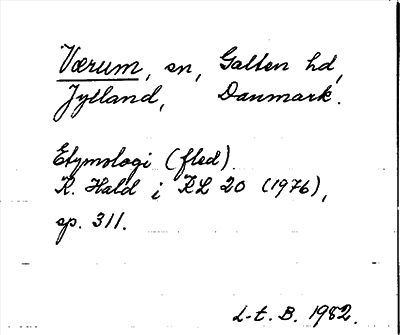 Værum, sn, Galten hd,
Jylland, Danmark.
Etymologi (fled).
K. Hald i KL 20 (1976),
sp. 311.
L-t. B. 1982.